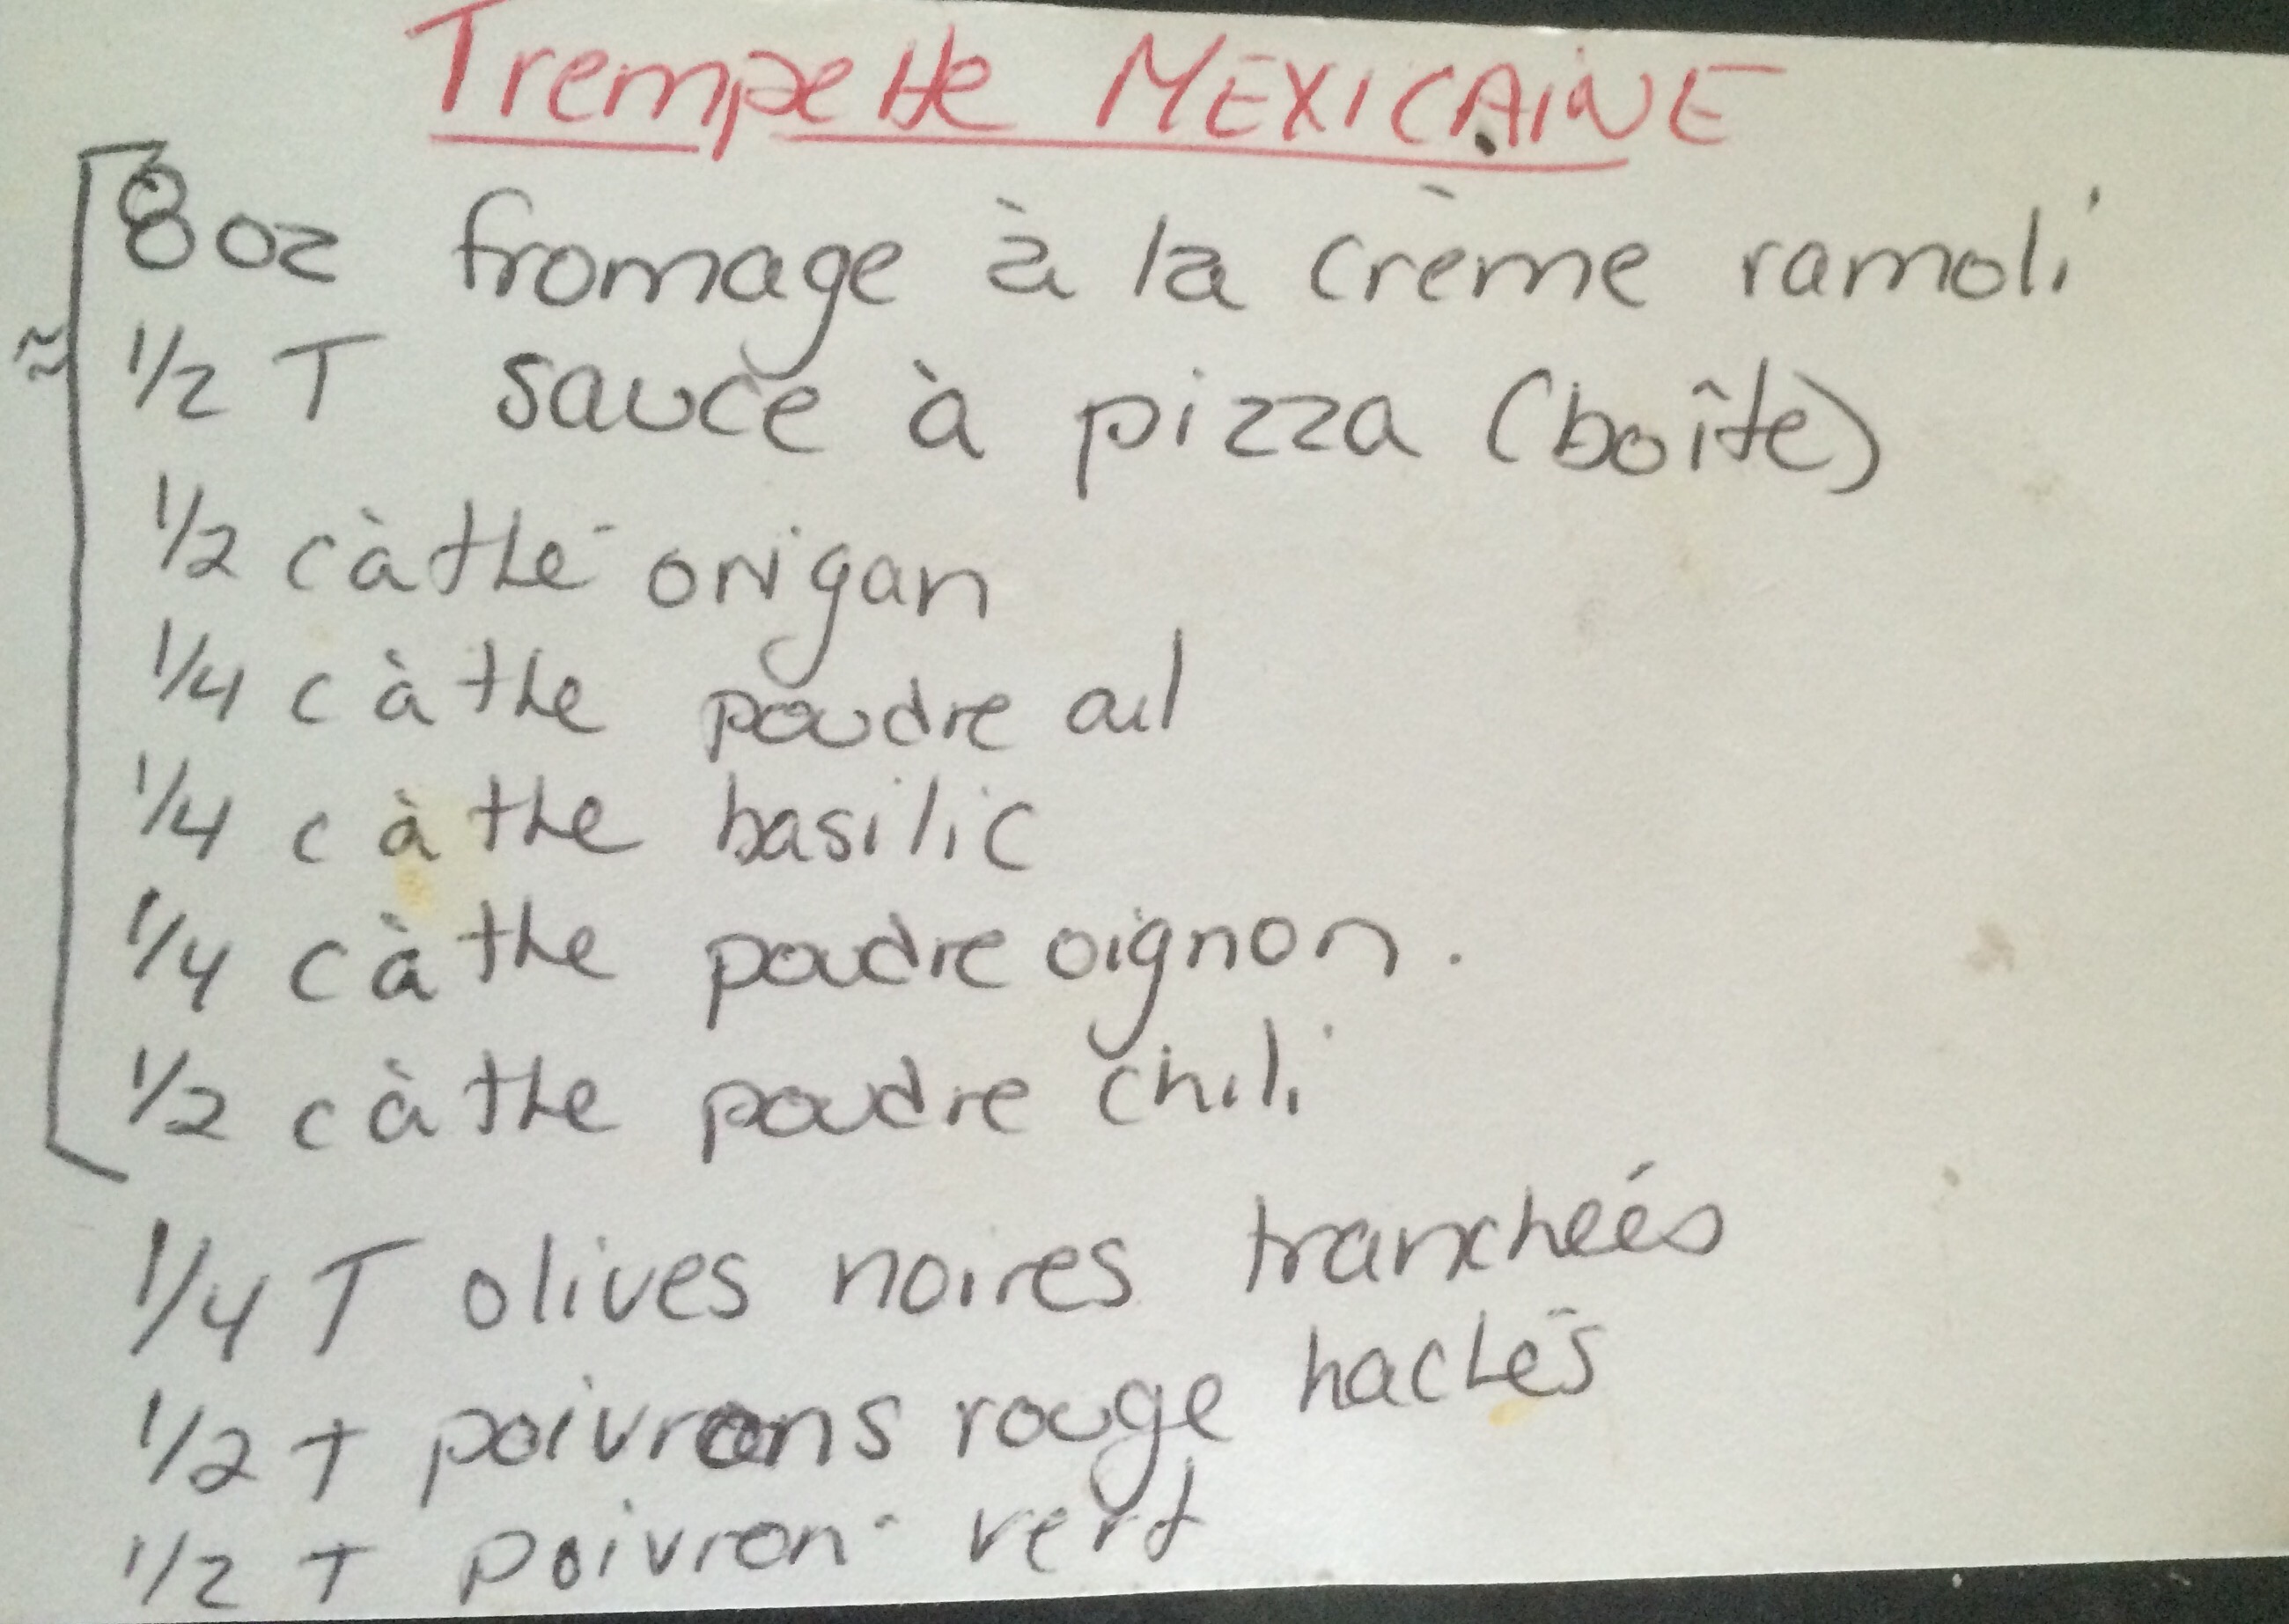 Trempette MEXICAINE
8 oz fromage à la crème ramoli
≈ 1/2 T sauce à pizza (boîte)
1/2 c à thé origan
1/4 c à the poudre ail
1/4 c à the basilic
1/4 c à the poudre oignon.
1/2 c à the poudre chili
1/4 T olives noires tranchées
1/2 T poivrons rouge hachés
1/2 T poivron vert